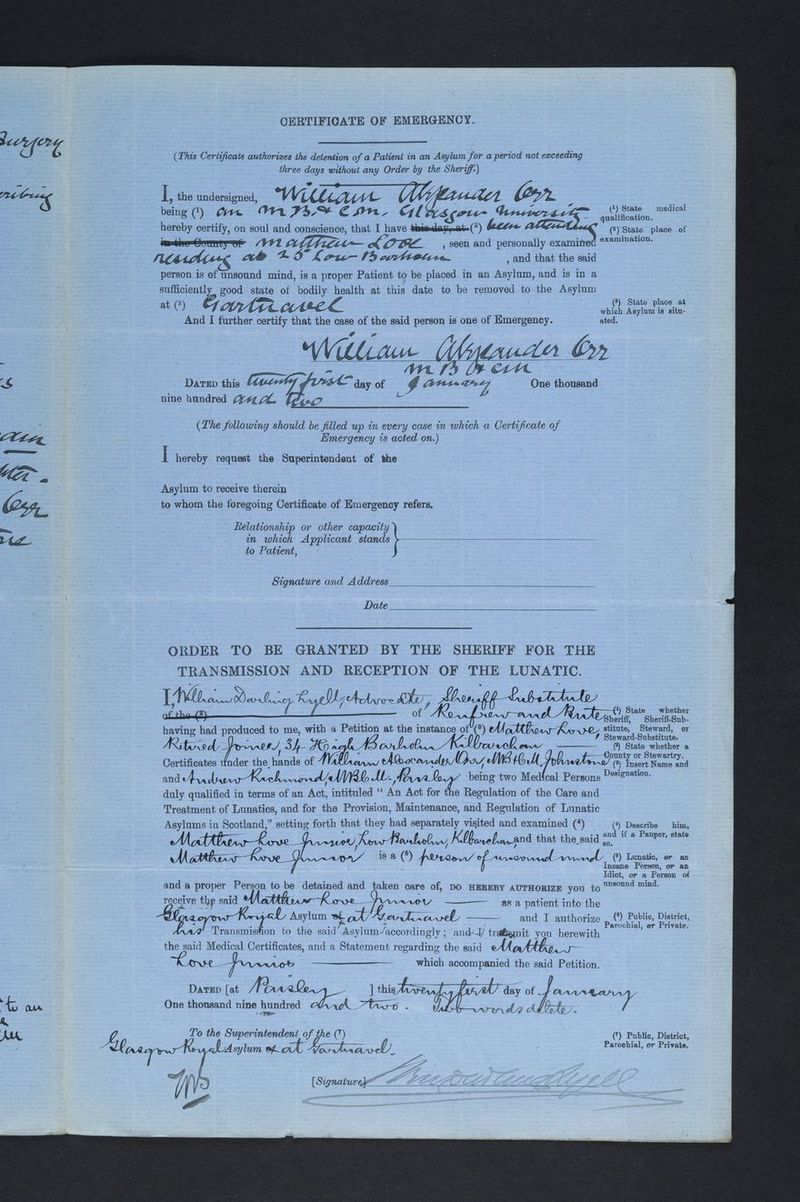 CERTIFICATE OF EMERGENCY.
(This Certificate authorizes the detention of a Patient in an Asylum for a period not exceeding
three days without any Order by the Sheriff.)
I, the undersigned, William Alexander Orr
being (¹) an M.B. & C.M. Glasgow University
hereby certify, on soul and conscience, that I have this day, at (²) been attending
in the County of Matthew Love, seen and personally examined
residing at 25 Low Barholm, and that the said
person is of unsound mind, is a proper Patient to be placed in an Asylum, and is in a
sufficiently good state of bodily health at this date to be removed to the Asylum
at (³) Gartnavel
And I further certify that the case of the said person is one of Emergency.
William Alexander Orr
M B & CM
DATED this twenty first day of January One thousand
nine hundred and two
(¹) State medical
qualification.
(²) State place of
examination.
(³) State place at
which Asylum is situ-
ated.
(The following should be filled up in every case in which a Certificate of
Emergency is acted on.)
I hereby request the Superintendent of the
Asylum to receive therein
to whom the foregoing Certificate of Emergency refers.
Relationship or other capacity
in which Applicant stands
to Patient,
Signature and Address
Date
ORDER TO BE GRANTED BY THE SHERIFF FOR THE
TRANSMISSION AND RECEPTION OF THE LUNATIC.
I, William Darling Lyell, Advocate, Sheriff Substitute
of the (²) of Renfrew and Bute
having had produced to me, with a Petition at the instance of (³) Matthew Love,
Retired Joiner, 34 High Barholm Kilbarchan
Certificates under the hands of William Alexander Orr, M.B.C.M. Johnstone
and Andrew Richmond, M.B.C.M., Paisley being two Medical Persons
duly qualified in terms of an Act, intituled “ An Act for the Regulation of the Care and
Treatment of Lunatics, and for the Provision, Maintenance, and Regulation of Lunatic
Asylums in Scotland,” setting forth that they had separately visited and examined (⁴)
Matthew Love Junior, Low Barholm, Kilbarchan and that the said
Matthew Love Junior is a (⁵) person of unsound mind
and a proper Person to be detained and taken care of, DO HEREBY AUTHORIZE you to
receive the said Matthew Love Junior as a patient into the
Glasgow Royal Asylum of at Gartnavel and I authorize
his Transmission to the said Asylum accordingly; and I transmit you herewith
the said Medical Certificates, and a Statement regarding the said Matthew
Love Junior which accompanied the said Petition.
DATED [at Paisley ] this twenty first day of January
One thousand nine hundred and two. Two words delete.
(¹) State whether
Sheriff, Sheriff-Sub-
stitute, Steward, or
Steward-Substitute.
(²) State whether a
County or Stewartry.
(³) Insert Name and
Designation.
(⁴) Describe him,
and if a Pauper, state
so.
(⁵) Lunatic, or an
Insane Person, or an
Idiot, or a Person of
unsound mind.
(⁶) Public, District,
Parochial, or Private.
To the Superintendent of the (⁷)
Glasgow Royal Asylum of at Gartnavel.
(⁷) Public, District,
Parochial, or Private.
[Signature]
Surgery
Orr
to an